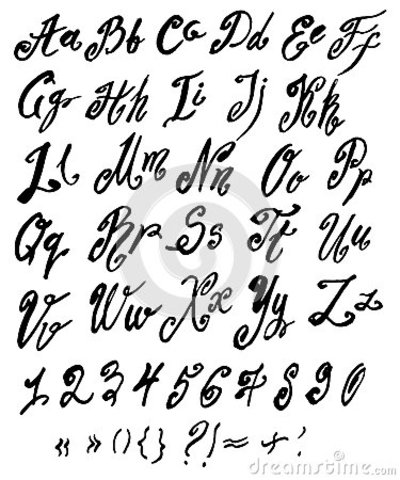 Aa Bb Cc Dd Ee Ff
Gg Hh Ii Jj Kk
Ll Mm Nn Oo Pp
Qq Rr Ss Tt Uu
Vv Ww Xx Yy Zz
1 2 3 4 5 6 7 8 9 0
« » () {} ? ! ≈ + '
dreamstime.com